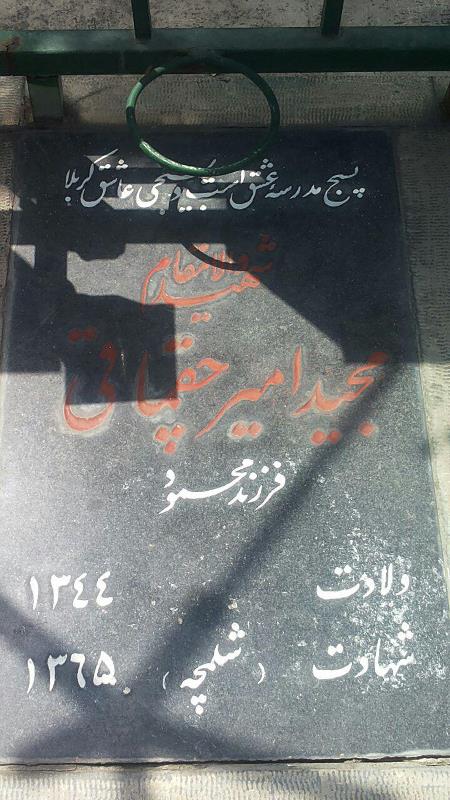 بسیج مدرسه عشق است و بسیجی عاشق کربلا
شهید والامقام
مجید امیر حقیاقی
فرزند محمود
ولادت ۱۳۴۴
شهادت (شلمچه) ۱۳۶۵